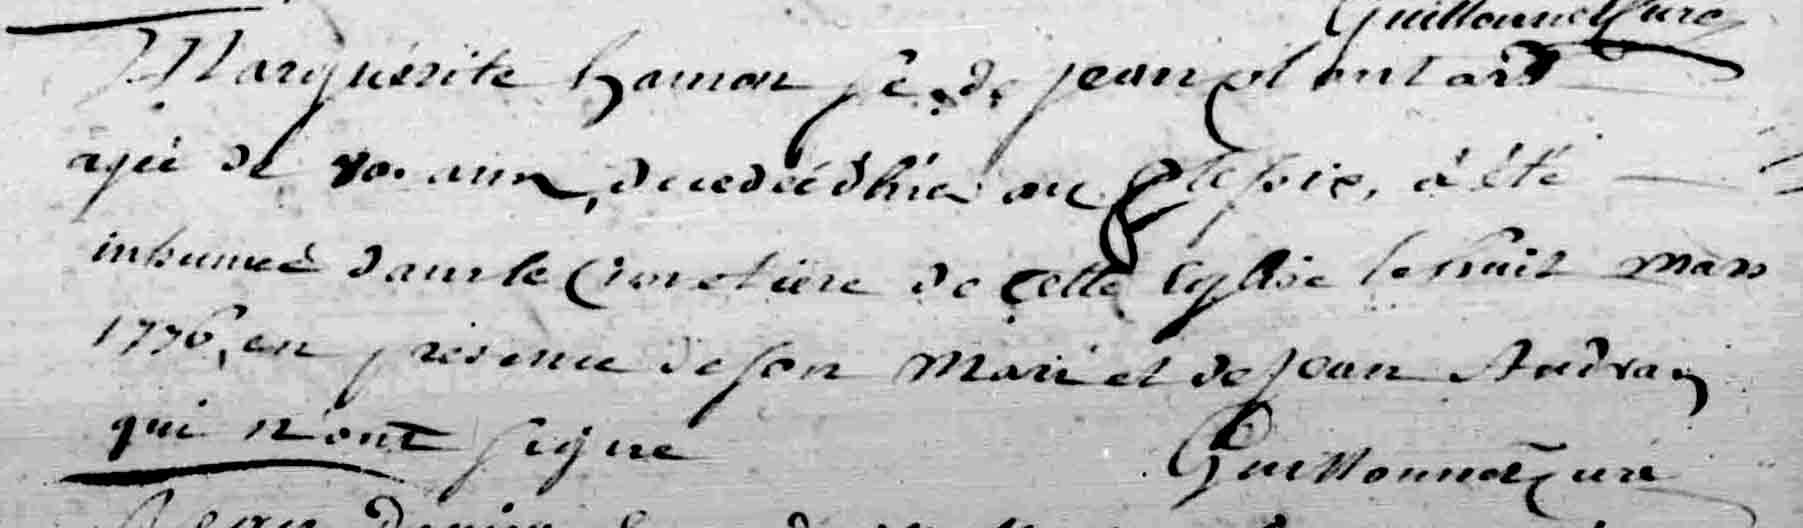 Guillonnet Curé
Marguérite hamon fe. de jean plantard
agée de 70. ans, décédée d'hier au Plessix, à été
inhumée dans le Cimetière de cette Eglise le huit mars
1776, en présence de son Mari et de jean Audrain
qui n'ont signé
Guillonnet Curé
jean